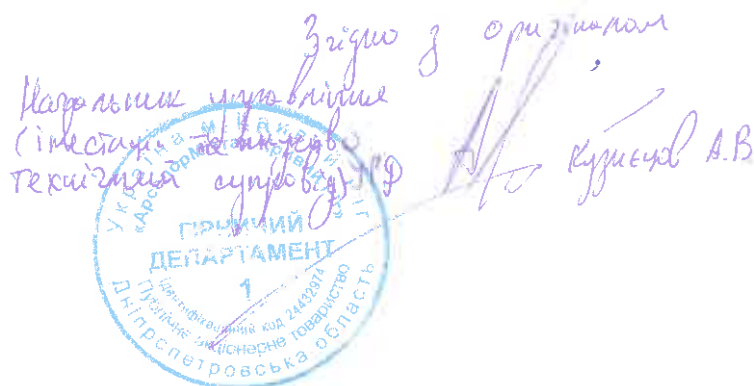 Згідно з оригіналом
Начальник управління
(інвестиції та
технічний супровід) ГД
Кузнєцов А.В
Україна м. Кривий Ріг
«АрселорМіттал Кривий Ріг»
ГІРНИЧИЙ
ДЕПАРТАМЕНТ
1
Ідентифікаційний код 24432974
Публічне акціонерне товариство
Дніпропетровська область